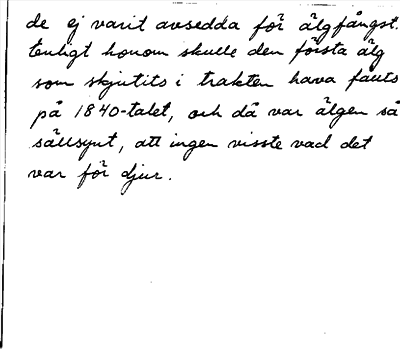 de ej varit avsedda för älgfångst.
Enligt honom skulle den första älg
som skjutits i trakten hava fauts
på 1840-talet, och då var älgen så
sällsynt, att ingen visste vad det
var för djur.